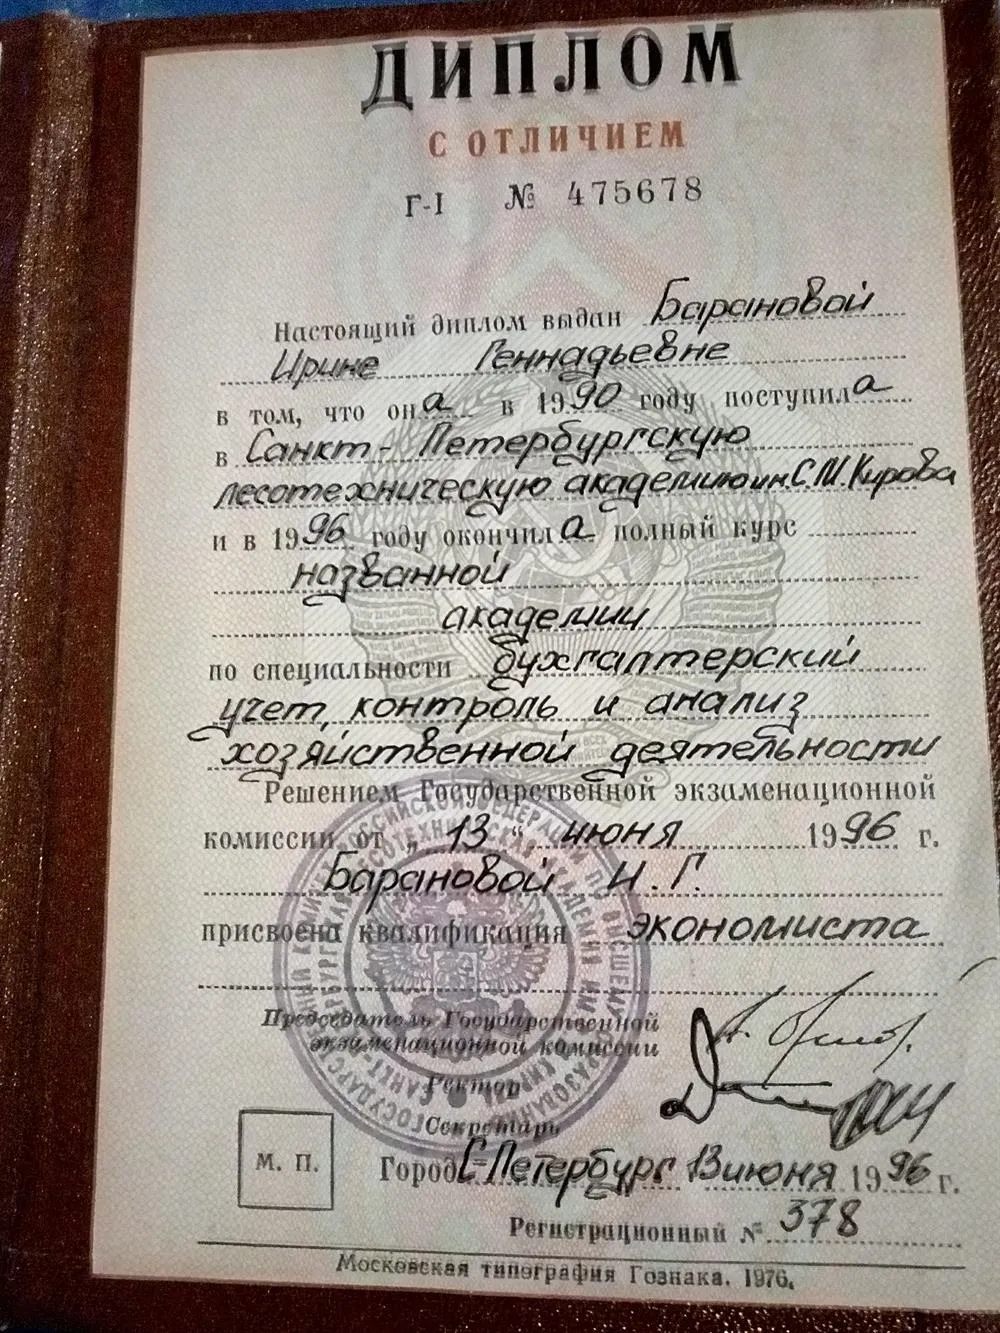 ДИПЛОМ
С ОТЛИЧИЕМ
Г-I № 475678
Настоящий диплом выдан Барановой
Ирине Геннадьевне
в том, что она в 1990 году поступила
в Санкт-Петербургскую
лесотехническую академию им. С.М. Кирова
и в 1996 году окончила полный курс
названной
академии
по специальности бухгалтерский
учет, контроль и анализ
хозяйственной деятельности
Решением Государственной экзаменационной
комиссии от „13“ июня 1996 г.
Барановой И. Г.
присвоена квалификация экономиста
Председатель Государственной
экзаменационной комиссии
Ректор
Секретарь
М. П.
Город С-Петербург 13 июня 1996 г.
Регистрационный № 378
Московская типография Гознака. 1976.